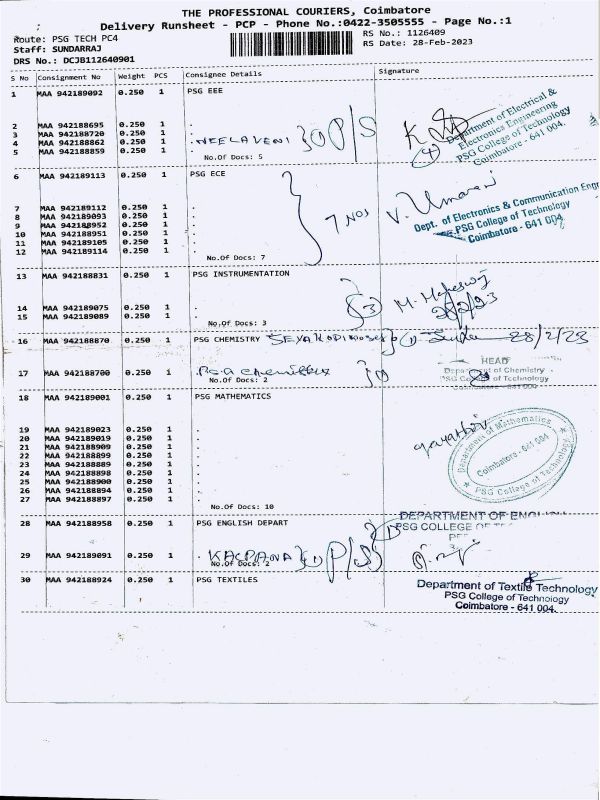 THE PROFESSIONAL COURIERS, Coimbatore
Delivery Runsheet - PCP - Phone No.:0422-3505555 - Page No.:1
Route: PSG TECH PC4 RS No.: 1126409
Staff: SUNDARRAJ RS Date: 28-Feb-2023
DRS No.: DCJB112640901
S No Consignment No Weight PCS Consignee Details Signature
1 MAA 942189092 0.250 1 PSG EEE
Department of Electrical &
Electronics Engineering
PSG College of Technology
Coimbatore - 641 004.
2 MAA 942188695 0.250 1 .
3 MAA 942188720 0.250 1 .
4 MAA 942188862 0.250 1 . NEELAVENI P/S
5 MAA 942188859 0.250 1 .
No.Of Docs: 5
6 MAA 942189113 0.250 1 PSG ECE
7 Nos V. Umarani
Dept. of Electronics & Communication Engg
PSG College of Technology
Coimbatore - 641 004.
7 MAA 942189112 0.250 1 .
8 MAA 942189093 0.250 1 .
9 MAA 942188952 0.250 1 .
10 MAA 942188951 0.250 1 .
11 MAA 942189105 0.250 1 .
12 MAA 942189114 0.250 1 .
No.Of Docs: 7
13 MAA 942188831 0.250 1 PSG INSTRUMENTATION
3 M. Maheswari
14 MAA 942189075 0.250 1 .
15 MAA 942189089 0.250 1 .
No.Of Docs: 3
16 MAA 942188870 0.250 1 PSG CHEMISTRY 28/2/23
HEAD
Department of Chemistry
PSG College of Technology
Coimbatore - 641 004
17 MAA 942188700 0.250 1 . PSG chemistry
No.Of Docs: 2
18 MAA 942189001 0.250 1 PSG MATHEMATICS
gayathri
Department of Mathematics
Coimbatore - 641 004
PSG College of Technology
19 MAA 942189023 0.250 1 .
20 MAA 942189019 0.250 1 .
21 MAA 942188909 0.250 1 .
22 MAA 942188899 0.250 1 .
23 MAA 942188889 0.250 1 .
24 MAA 942188898 0.250 1 .
25 MAA 942188900 0.250 1 .
26 MAA 942188894 0.250 1 .
27 MAA 942188897 0.250 1 .
No.Of Docs: 10
28 MAA 942188958 0.250 1 PSG ENGLISH DEPART
DEPARTMENT OF ENGLISH
PSG COLLEGE OF
29 MAA 942189091 0.250 1 . KALPANA P/S
No.Of Docs: 2
30 MAA 942188924 0.250 1 PSG TEXTILES
Department of Textile Technology
PSG College of Technology
Coimbatore - 641 004.